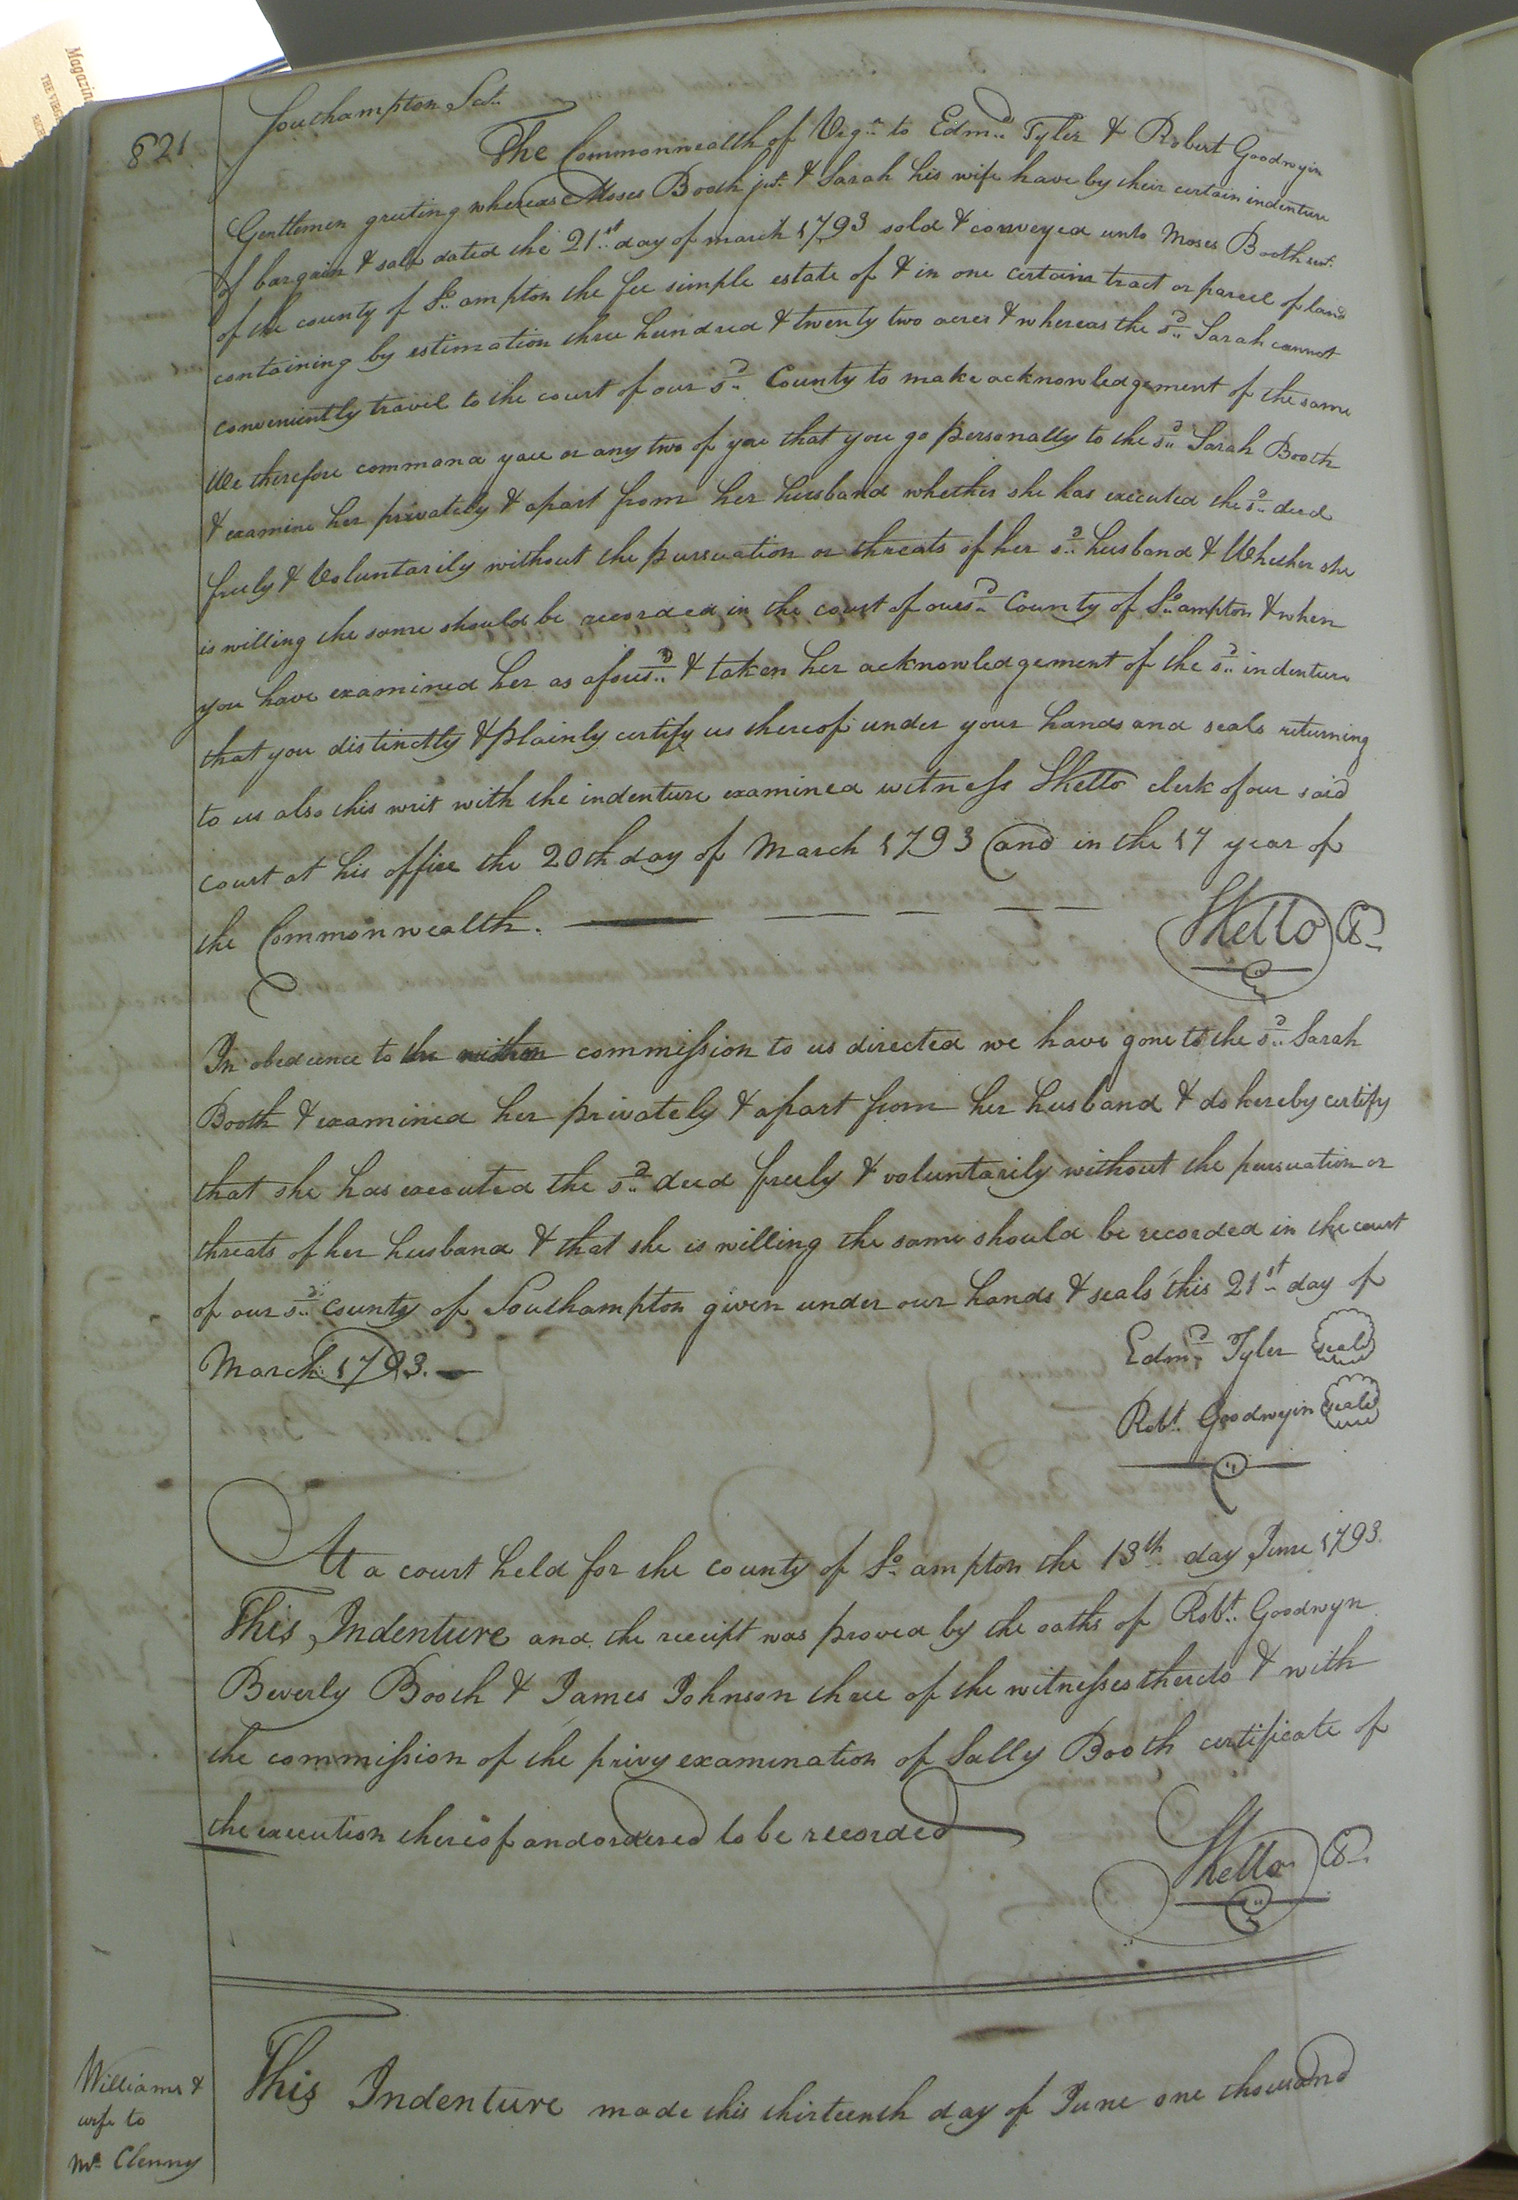 Magazin
THE VIRG
821
Southampton Sct.
The Commonwealth of Virga. to Edmd. Tyler & Robert Goodwyin
Gentlemen greeting whereas Moses Booth junr. & Sarah his wife have by their certain indenture
of bargain & sale dated the 21st day of march 1793 sold & conveyed unto Moses Booth senr.
of the county of So. ampton the fee simple estate of & in one certain tract or parcel of land
containing by estimation three hundred & twenty two acres & whereas the sd. Sarah cannot
conveniently travil to the court of our sd. County to make acknowledgement of the same
We therefore command you or any two of you that you go personally to the sd. Sarah Booth
& examine her privately & apart from her husband whether she has executed the sd. deed
freely & Voluntarily without the pursuation or threats of her sd. husband & Whether she
is willing the same should be recorded in the court of our sd. County of So. ampton & when
you have examined her as aforesd. & taken her acknowledgement of the sd. indenture
that you distinctly & plainly certify us thereof under your hands and seals returning
to us also this writ with the indenture examined witness Skelto clerk of our said
court at his office the 20th day of March 1793 and in the 17 year of
the Commonwealth.
In obedience to the within commission to us directed we have gone to the sd. Sarah
Booth & examined her privately & apart from her husband & do hereby certify
that she has executed the sd. deed freely & voluntarily without the pursuation or
threats of her husband & that she is willing the same should be recorded in the court
of our sd. county of Southampton given under our hands & seals this 21st day of
March 1793.
Edmd. Tyler seal
Robt. Goodwyin seal
At a court held for the county of So. ampton the 13th day June 1793.
This Indenture and the receipt was proved by the oaths of Robt. Goodwyn
Beverly Booth & James Johnson three of the witnesses thereto & with
the commission of the privy examination of Sally Booth certificate of
the execution thereof and ordered to be recorded
Williams &
wife to
Mc. Clenny
This Indenture made this thirteenth day of June one thousand